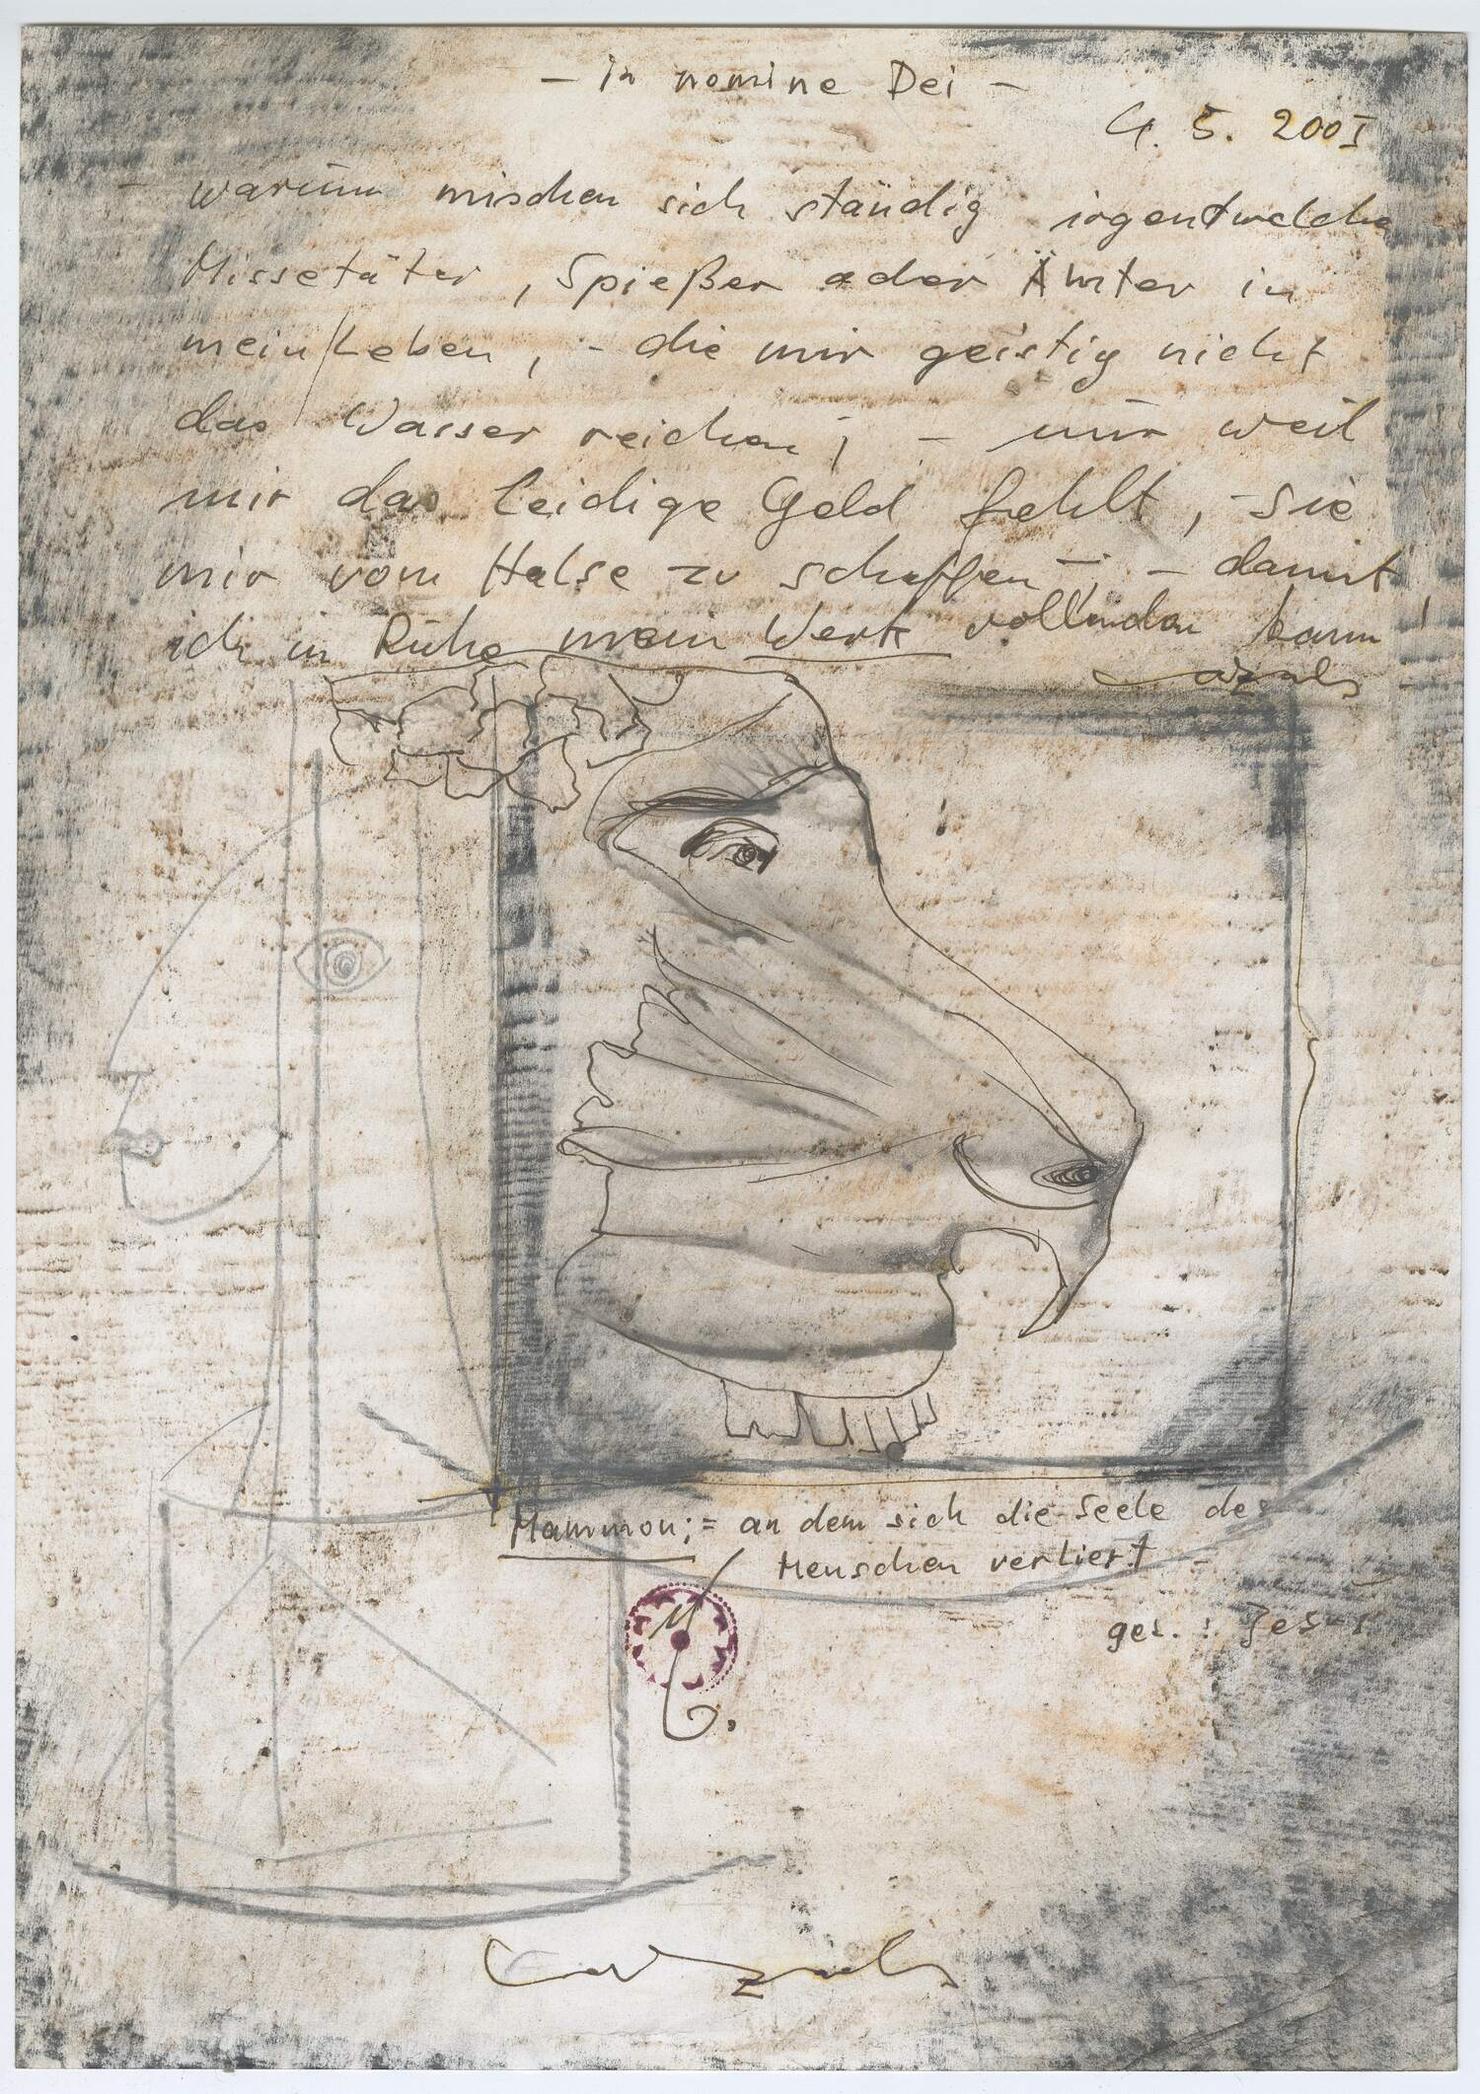 - in nomine Dei -
4. 5. 2001
- warum mischen sich ständig irgentwelche
Missetäter, Spießer oder Ämter in
mein Leben, - die mir geistig nicht
das Wasser reichen; - nur weil
mir das leidige Geld fehlt, - sie
mir vom Halse zu schaffen -; - damit
ich in Ruhe mein Werk vollenden kann!
Mammon; = an dem sich die Seele des
Menschen verliert -
ges.: Jesus